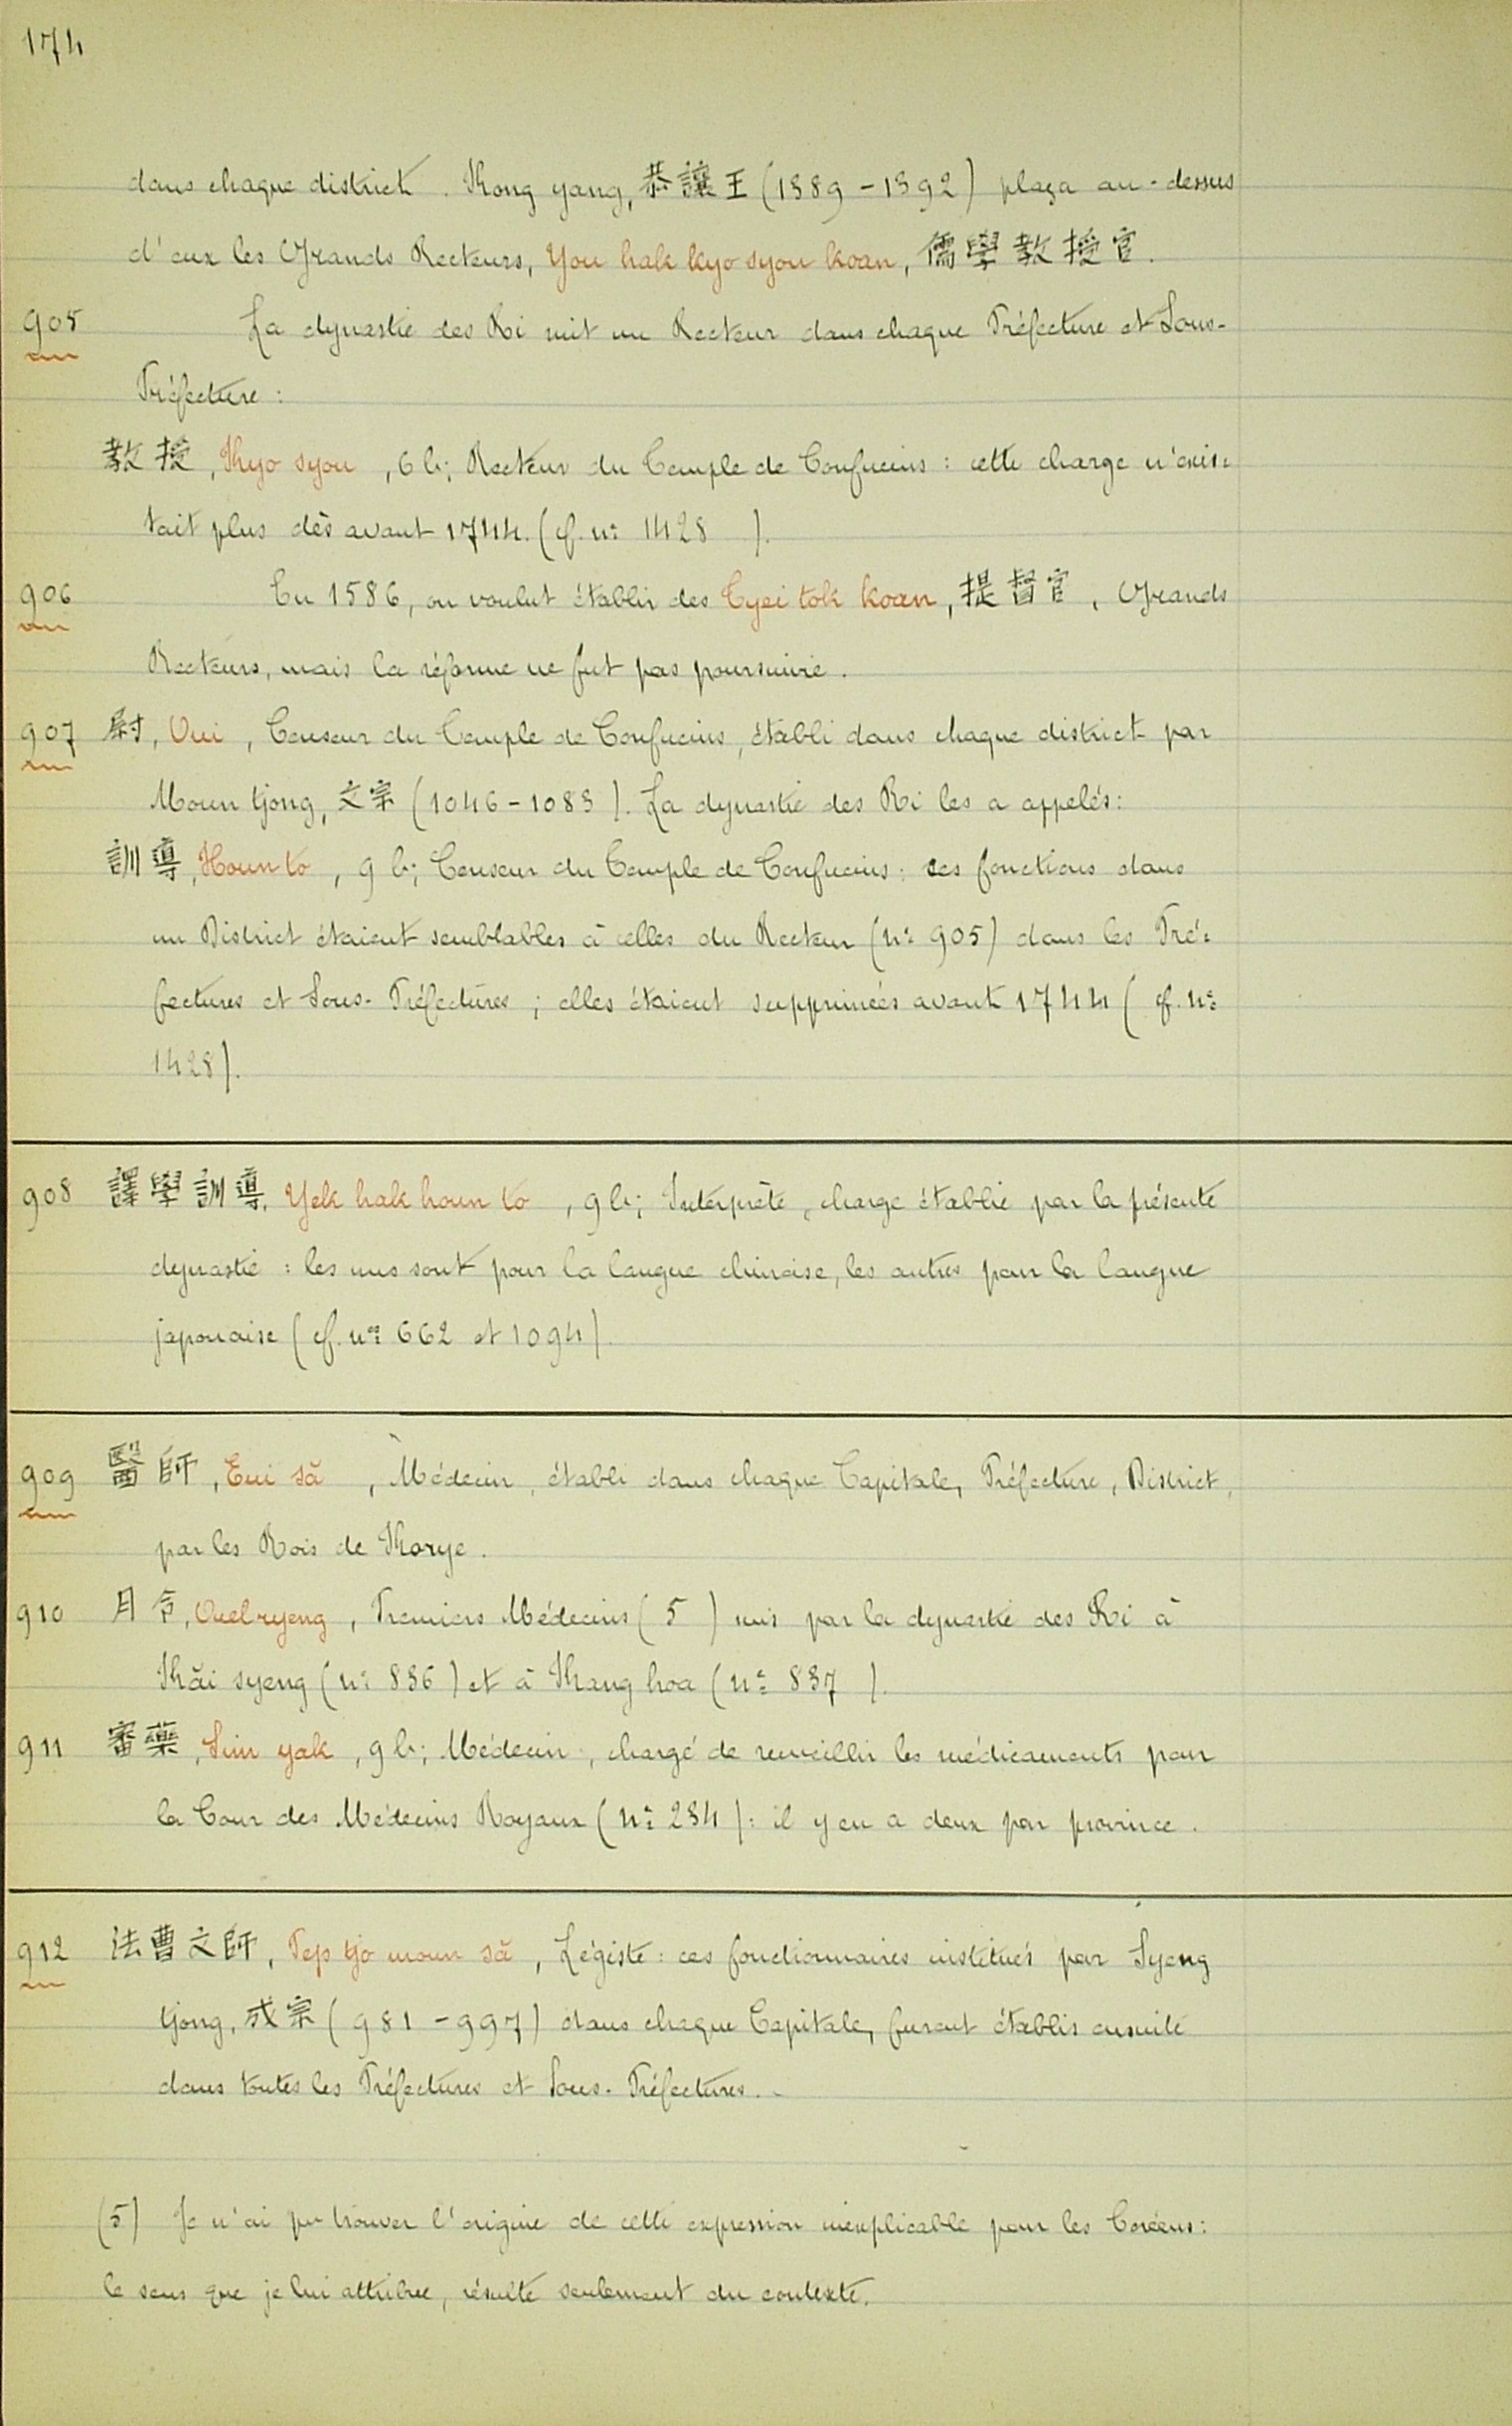 174
dans chaque district. Kong yang, 恭讓王 (1389-1392) plaça au-dessus
d'eux les Grands Recteurs, You hak kyo syou koan, 儒學教授官.
905 La dynastie des Ri mit un Recteur dans chaque Préfecture et Sous-
Préfecture:
教授, Kyo syou, 6 b; Recteur du Temple de Confucius: cette charge n'exis-
tait plus dès avant 1744. (cf. n° 1428 ).
906 En 1586, on voulut établir des Tyei tok koan, 提督官, Grands
Recteurs, mais la réforme ne fut pas poursuivie.
907 尉, Oui, Censeur du Temple de Confucius, établi dans chaque district par
Moun tjong, 文宗 (1046-1083). La dynastie des Ri les a appelés:
訓導, Houn to, 9 b; Censeur du Temple de Confucius: ses fonctions dans
un District étaient semblables à celles du Recteur (n° 905) dans les Pré-
fectures et Sous-Préfectures; elles étaient supprimées avant 1744 ( cf. n°
1428).
908 譯學訓導, Yek hak houn to, 9 b; Interprète, charge établie par la présente
dynastie: les uns sont pour la langue chinoise, les autres pour la langue
japonaise (cf. nos 662 et 1094).
909 醫師, Eui să, Médecin, établi dans chaque Capitale, Préfecture, District,
par les Rois de Korye.
910 月令, Ouel ryeng, Premiers Médecins (5) mis par la dynastie des Ri à
Kăi syeng (n° 836) et à Kang hoa (n° 837 ).
911 審藥, Sim yak, 9 b; Médecin, chargé de recueillir les médicaments pour
la Cour des Médecins Royaux (n° 234): il y en a deux par province.
912 法曹文師, Pep tjo moun să, Légiste: ces fonctionnaires institués par Syeng
tjong, 成宗 (981-997) dans chaque Capitale, furent établis ensuite
dans toutes les Préfectures et Sous-Préfectures.
(5) Je n'ai pu trouver l'origine de cette expression inexplicable pour les Coréens:
le sens que je lui attribue, résulte seulement du contexte.